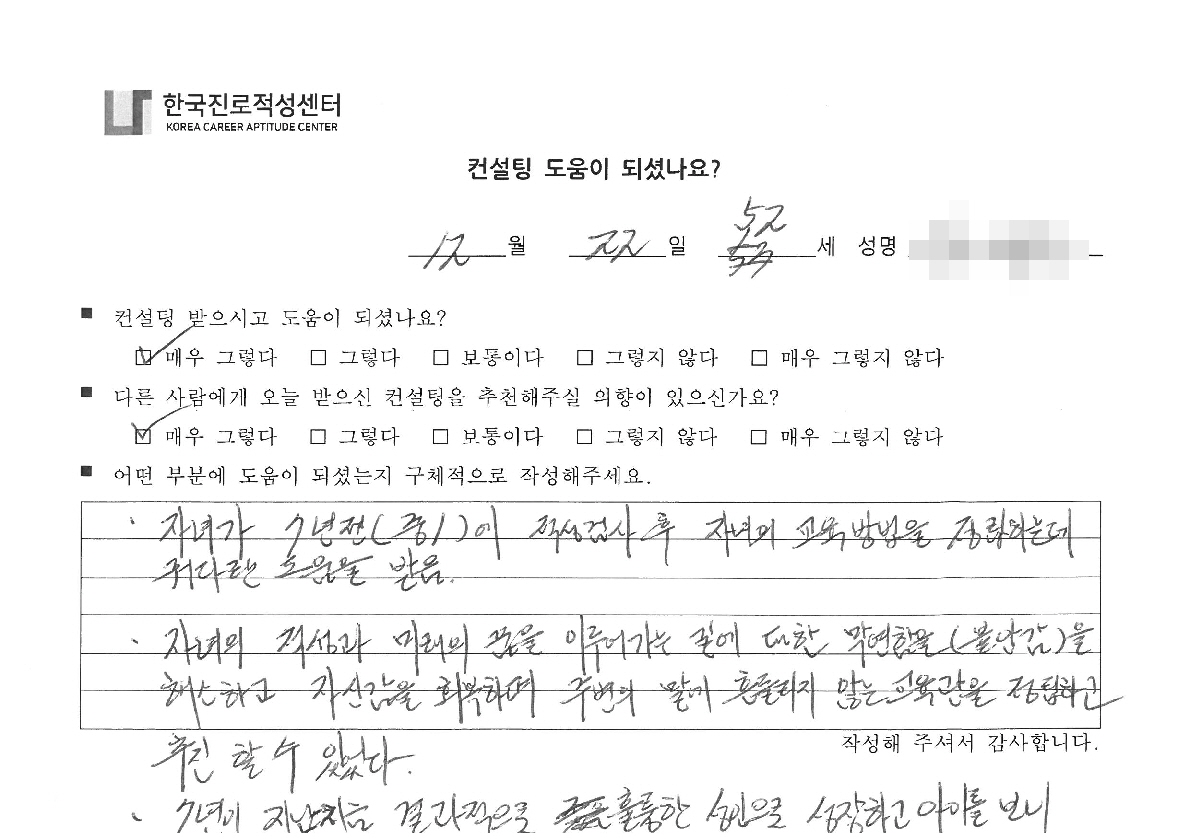 한국진로적성센터
KOREA CAREER APTITUDE CENTER
컨설팅 도움이 되셨나요?
12 월 22 일 52 세 성명
■ 컨설팅 받으시고 도움이 되셨나요?
☑ 매우 그렇다 □ 그렇다 □ 보통이다 □ 그렇지 않다 □ 매우 그렇지 않다
■ 다른 사람에게 오늘 받으신 컨설팅을 추천해주실 의향이 있으신가요?
☑ 매우 그렇다 □ 그렇다 □ 보통이다 □ 그렇지 않다 □ 매우 그렇지 않다
■ 어떤 부분에 도움이 되셨는지 구체적으로 작성해주세요.
· 자녀가 7년전(중1)에 적성검사 후 자녀의 교육방법을 정립하는데
커다란 도움을 받음.
· 자녀의 적성과 미래의 꿈을 이루어가는 길에 대한 막연함을(불안감)을
해소하고 자신감을 회복하며 주변의 말에 흔들리지 않는 교육관을 정립하고
추진 할 수 있었다.
작성해 주셔서 감사합니다.
· 7년이 지난지금 결과적으로 훌륭한 성인으로 성장하고 아이를 보니